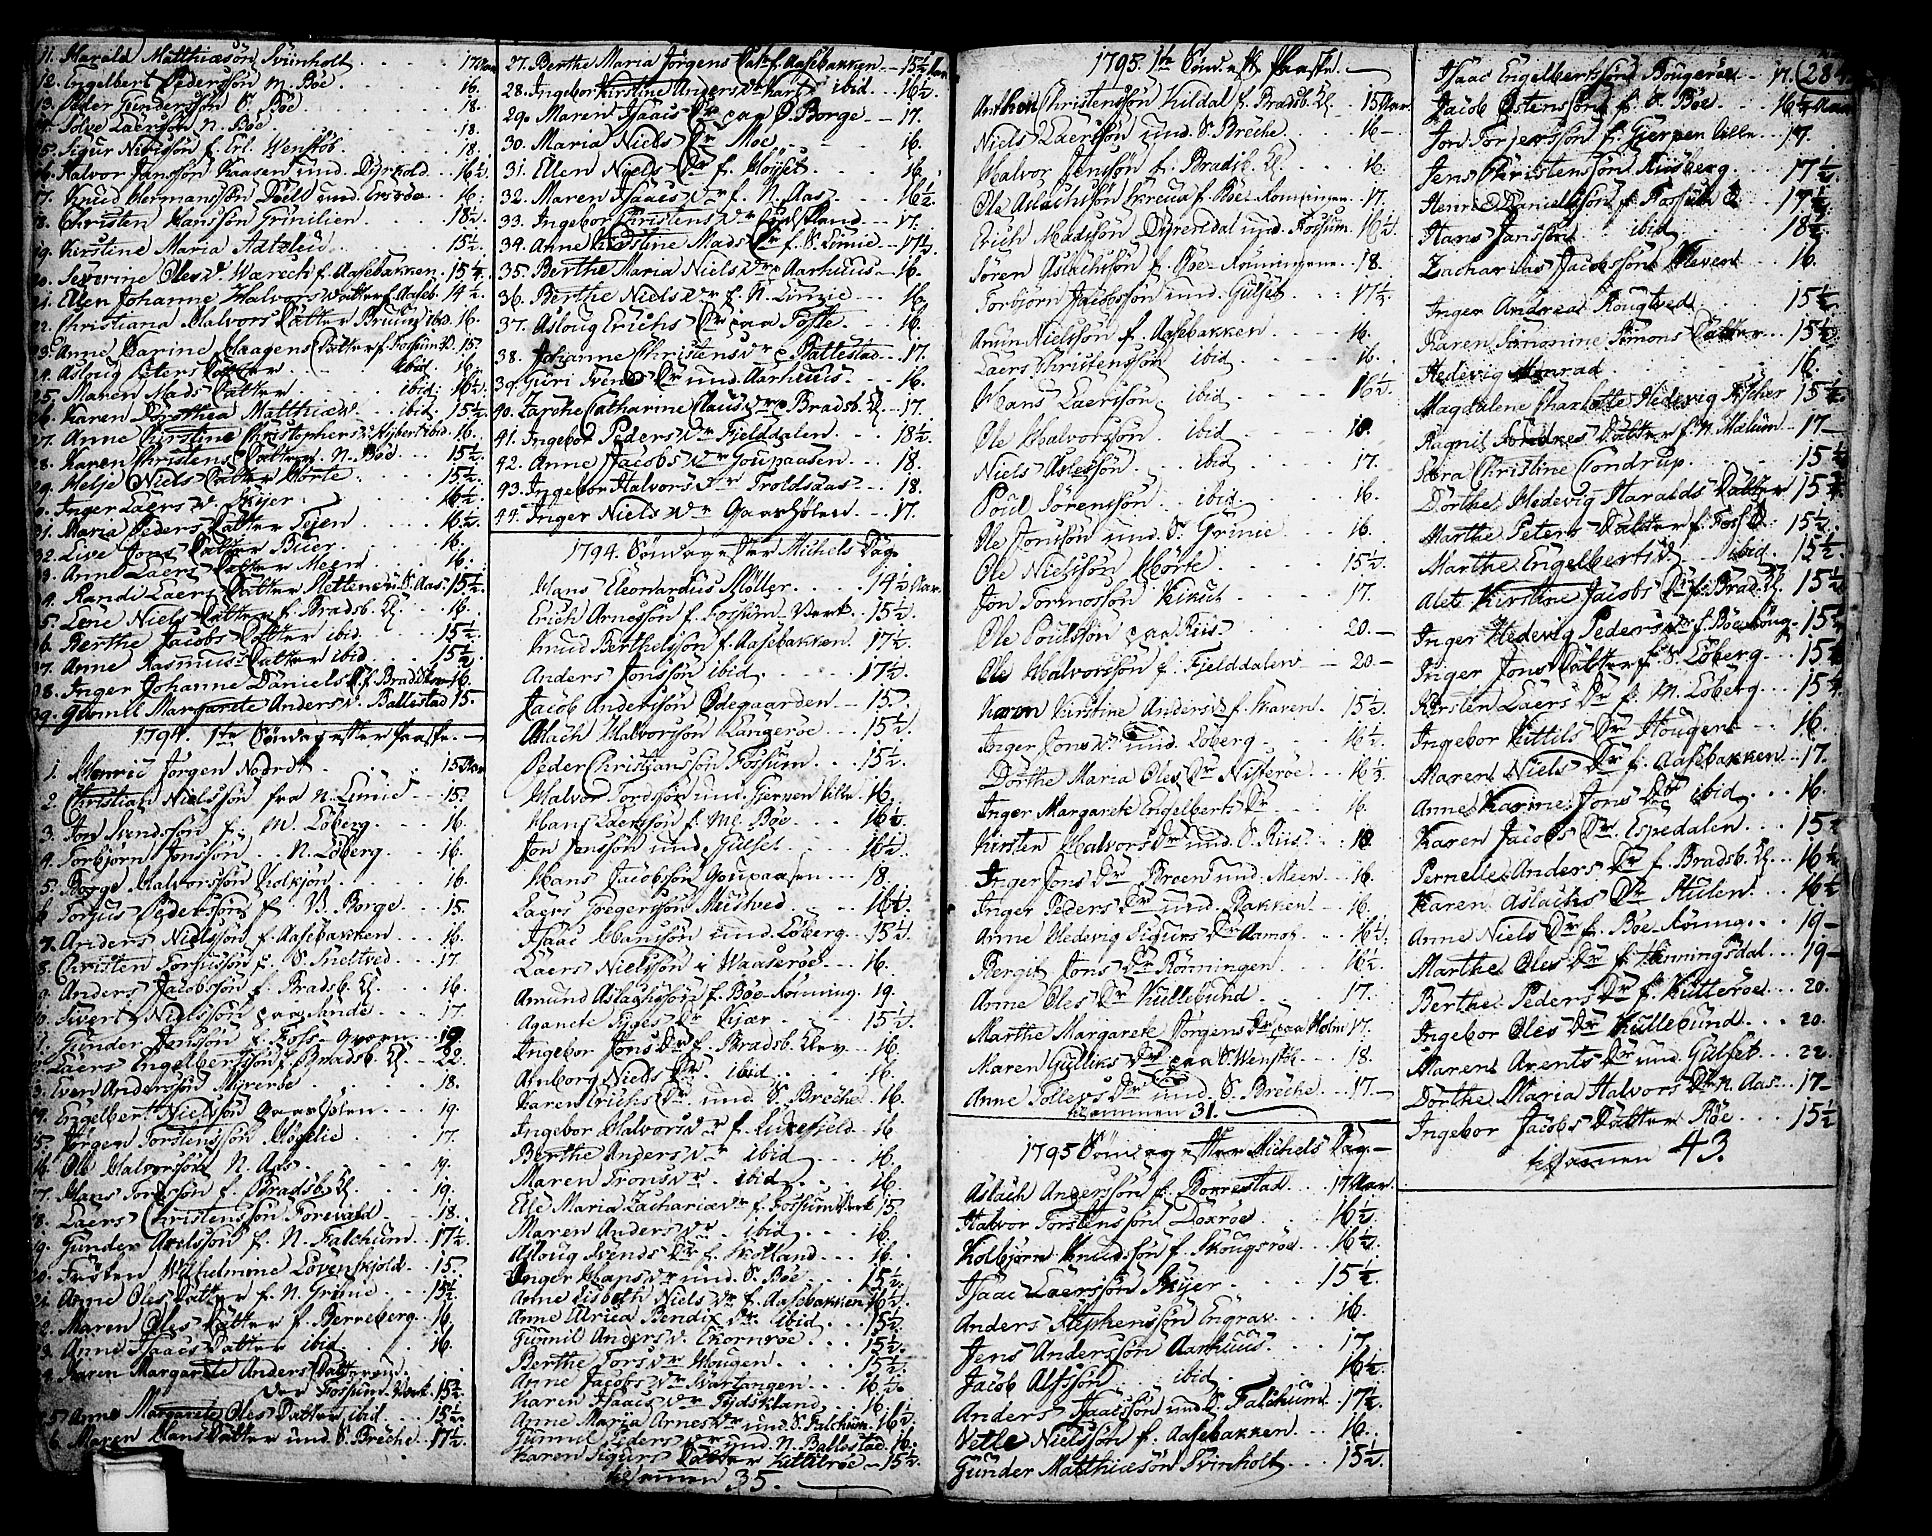 11. Harald Matthiæsøn Svinholt . . . 17 Aar
12. Engelbert Pedersøn N. Böe . . 16.
13. Peder Gundersøn S. Böe . . 18.
Tolve Laersøn N. Böe . . 18.
15. Sigur Nielssøn f. Erl. Wenstöb . . 18.
Halvor Janssøn Kaasen und. Dyrkold . . 16½
17. Knud Hermanssøn Döell und. . . 16.
18. Christen Hanssøn Grinilien . . 18½
19. Kirstine Maria . . 15½.
20. Severine Oles D. Wærech f. Aasebakken . 15½
21. Ellen Johanne Halvors Datter f. Aaseb. 14½.
22. Christiana Halvors Datter Bruun ibid. 16.
23. Anne Carine Haagens Datter f. Fossum 15.
24. Aslaug Peters Datter . . ibid. 16.
25. Maren Mads Datter . . ibid. 16½.
26. Karen Dorothea Matthiæ D. . . ibid. 15½
27. Anne Kirstine Christophers D. ibid. 16.
28. Karen Christens Datter N. Böe . . 15½
29. Helje Niels Datter Hörte . . 15½.
30. Inger Laers D. Skyer . . 16½.
31. Maria Peders Datter Tejen . . 16½.
32. Live Jons Datter Buer . . 16.
33. Anne Laers Datter Meen . . 16.
34. Randi Laers Datter Hetten u. S. Aas 15½
35. Lene Niels Datter f. Bradsb. Kl. . 16.
36. Berthe Jacobs Datter ibid . . 15½
37. Anne Rasmus Datter ibid . . 15½
38. Inger Johanne Daniels D. f. Bradsb. 16.
39. Gunnil Margarete Anders D. Ballestad 15.
1794. 1te Söndag efter Paaske.
1. Henric Jörgen . . 15 Aar
2. Christian Nielssøn fra N. Limie . 15.
3. Jon Svendssøn f. M. Löberg . . 16.
4. Torbjörn Jonssøn . . N. Löberg . . 16.
5. Börge Halvorssøn Kolkjøn . . 16.
6. Torjus Pederssøn f. V. Borge . . 15.
7. Anders Nielssøn f. Aasebakken . . 16.
8. Christen Torjussøn f. S. Sneltved . . 17.
9. Anders Jacobssøn f. Bradsb. Kl. . 16.
10. Sivert Nielssøn paa Lunde . . 17.
11. Gunder Jenssøn f. Foss-Qværn . . 19
12. Laers Engelbertssøn f. Bradsb. Kl. . 22.
13. Even Anderssøn Myreroe . . 18.
14. Engelbert Nielssøn Gaarhölen . . 19.
15. Jörgen Torstenssøn Mögelie . . 17.
16. Ole Halvorssøn N. Aas . . 19.
17. Hans Tordssøn f. Bradsb. Kl. . 19.
18. Laers Christenssøn Forevald . . 18.
19. Gunder Axelssøn f. N. Falchum . . 17½.
20. Frøken Wilhelmine Lövenskjold . . 15.
21. Anne Oles Datter f. N. Grinie . . 15½
22. Maren Oles Datter f. Berreberg . . 16.
23. Anne Isaacs Datter ibid . . 16.
24. Karen Margarete Anders Datter
ved Fossum Verk . 15½
25. Anne Margarete Oles Datter ibid . . 15½
26. Maren Hans Datter und. S. Bröche . 17½.
27. Berthe Maria Jörgens Datt. f. Aasebakken . 15½ Aar
28. Ingebor Kirstine Anders D. ibid . 16½.
29. Maren Isaacs Dr paa Ø. Borge . . 17.
30. Maria Niels Dr Moe . . 16.
31. Ellen Niels Dr f. Höyset . . 16.
32. Maren Isaacs Dr f. N. Aas . . 16½
33. Ingebor Christens Dr . . 17.
34. Anne Kirstine Mads Dr f. S. Limie . . 17½
35. Berthe Maria Niels Dr Aarhuus . . 16.
36. Berthe Niels Dr f. N. Limie . . 16.
37. Asloug Erichs Dr paa Foste . . 16.
38. Johanne Christens Dr Ballestad . . 17.
39. Guri Svends Dr und. Aarhuus . . 16.
40. Zarche Catharine Claus Dr Bradsb. Kl. . 17.
41. Ingebor Peders Dr Fjelddalen . . 18½.
42. Anne Jacobs Dr Goupaasen . . 18.
43. Ingebor Halvors Dr Troldsaas . . 18.
44. Inger Niels Dr Gaarhölen . . 17.
1794. Söndag efter Michels Dag
Hans Eleonardus Möller . . 14½ Aar.
Erich Arnessøn f. Fossum Værk . 15½.
Knud Berthelssøn f. Aasebakken . 17½.
Anders Jonssøn ibid . . 17½.
Jacob Anderssøn Ødegaarden . . 15.
Aslach Halvorssøn Kangerøe . . 15½.
Peder Christianssøn Fossum . . 15½.
Halvor Tordssøn und. Gjerpen Lille . 16.
Hans Laerssøn f. M. Böe . . 16½
Jon Jenssøn und. Gulset . . 16½.
Hans Jacobssøn Goupaasen . . 18.
Laers Gregerssøn Mustved . . 16½.
Isaac Hanssøn und. Löberg . . 15½.
Laers Nielssøn i Waaserøe . . 16.
Amund Aslachssøn f. Böe-Rönning . 19.
Aganete Dr Kjær . . 15½.
Ingebor Jons Dr f. Bradsb. Klev . . 16.
Anborg Niels Dr ibid . . 16.
Karen Erichs Dr und S. Bröche . 16.
Ingebor Halvors Dr f. Luxefjeld . 16
Berthe Anders Dr ibid . . 16.
Maren Trons Dr ibid . . 16.
Else Maria Zachariæ Dr f. Fossum Verk 15.
Maren Anders Dr ibid . . 16.
Asloug Svends Dr f. Skotland . . 16.
Inger Hans Dr und. S. Böe . . 15½.
Anne Lisbeth Niels Dr f. Aasebakken 16½.
Anne Ulrica Bendix Dr ibid . . 15½.
Gunnil Anders D. Ekornröe . . 15½.
Berthe Tors Dr Hougen . . 15½.
Anne Jacobs Dr Svartangen . . 16½.
Karen Isaacs Dr . . 16.
Anne Maria Arnes Dr und. S. Falchum . 16½
Gunnil Peders Dr und N. Ballestad . 16.
Karen Sigurs Datter Kittilröe . 15½.
tilsammen 35.
1795. 1te Sönd. efter Paaske.
Anthon Christenssøn Kildal f. Bradsb. Kl. . 15 Aar.
Niels Laerssøn und. S. Bröche . . 16
Halvor Jenssøn f. Bradsb. Kl. . . 16.
Ole Aslachssøn f. Böe-Rønningen . 17.
Erich Madssøn Dyresdal und. Fossum 16½.
Sören Aslachssøn f. Böe-Rönningene . . 18.
Torbjörn Jacobssøn und. Gulset . . 17½.
Anun Nielssøn f. Aasebakken . . 16.
Laers Christenssøn ibid . . 16.
Hans Laerssøn ibid . . 16½
Ole Halvorssøn ibid . . 19.
Niels Aslessøn . . ibid . . 17.
Poul Sörenssøn . . ibid . . 16.
Ole Jonssøn und. S. Grinie . . 16.
Ole Nielssøn Hörte . . 15½.
Jon Tormossøn Kikut . . 17.
Ole Poulssøn paa Riis . . 20.
Ole Halvorssøn f. Fjelddalen . 20.
Karen Kirstine Anders D. f. Haven . 15½.
Inger Jons D. und. Löberg . . 16½.
Dörthe Maria Oles Dr Nisterøe . . 16½
Inger Margarete Engelberts Dr . . 16.
Kirsten Halvors Dr und. S. Riis . . 19.
Inger Jons Dr Broen und. Meen . . 16.
Inger Peders Dr und. Bakken . . 16.
Anne Hedevig Sigurs Dr Aamot . . 16½
Bergit Jons Dr Rönningen . . 16½.
Anne Oles Dr Kullebund . . 17.
Marthe Margarete Jörgens Dr paa Holm 17.
Maren Gulliks Dr paa S. Wenstöb . . 18.
Anne Tollevs Dr und. S. Bröche . . 17.
tilsammen 31.
1795 Söndag efter Michels Dag.
Aslach Anderssøn f. Borrestad . . 17 Aar.
Halvor Torstenssøn Doxrøe . . 16½.
Kolbjörn Knudssøn f. Skougsröe . . 16½.
Isaac Laerssøn Skyer . . 15½.
Anders Stephenssøn Engrav . . 16.
Jens Anderssøn Aarhuus . . 17.
Jacob Alfssøn . . ibid . . 16½.
Anders Isacssøn und. S. Falchum . 17½.
Vetle Nielssøn f. Aasebakken . . 16.
Gunder Matthiæsøn Svinholt . . 15½.
Isaac Engelbertssøn Bougeröe . 17.
284.
Jacob Østenssøn f. S. Böe . . 16½ Aar
Jon Torjerssøn f. Gjerpen Lille . 17.
Jens Christenssøn Riisberg . . 17½
Henric Danielssøn f. Fossum . . 17½
Hans Janssøn . . ibid . . 18½
Zacharias Jacobssøn Kleven . . 16.
Inger Andrea Rougtved . . 15½
Karen Simonine Simons Datter . . 15½
Hedevig Monrad . . 16.
Magdalene Charlotte Hedevig Ascher 15½
Ragnil Andres Datter f. N. Mælum . . 17
Sara Christine Condrup . . 15½
Dorthe Hedevig Haralds Datter 15½
Marthe Peters Datter f. Foss. V. . 15½.
Marthe Engelberts D. ibid. . 15½.
Alet Kirstine Jacobs Dr f. Bradsb. Kl. 15½
Inger Hedevig Peders Dr f. Böe-Röning . 15½
Inger Jons Datter f. S. Löberg . . 15½
Kirsten Laers Dr f. M. Löberg . . 15½
Ingebor Kittils Dr Hougen . . 16.
Maren Niels Dr f. Aasebakken . 17.
Anne Karine Jons Dr ibid . . 16.
Karen Jacobs Dr Espedalen . . 15½
Pernelle Anders Dr f. Bradsb. Kl. . 16½
Karen Aslachs Dr Hulen . . 16½
Anne Niels Dr f. Böe-Röning . . 19
Marthe Oles Dr f. Henningsdal . 19
Berthe Peders Dr f. Kutteröe . . 20.
Ingebor Oles Dr Kullebund . . 20.
Maren Arents Dr und. Gulset . . 22.
Dorthe Maria Halvors Dr N. Aas . . 17
Ingebor Jacobs Datter Röe . . 15½
tilsammen 43.